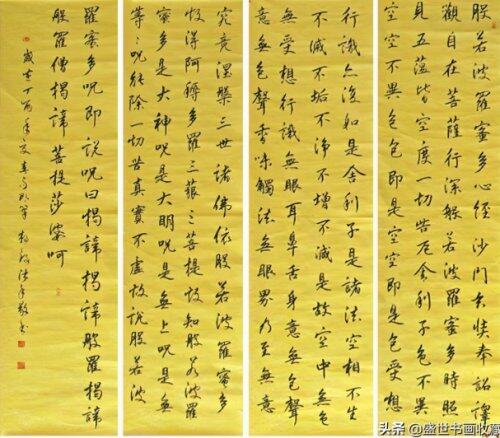 般若波羅蜜多心經沙門玄奘奉詔譯
觀自在菩薩行深般若波羅蜜多時照
見五蘊皆空度一切苦厄舍利子色不異
空空不異色色即是空空即是色受想
行識亦復如是舍利子是諸法空相不生
不滅不垢不淨不增不減是故空中無色
無受想行識無眼耳鼻舌身意無色聲
意無色聲香味觸法無眼界乃至無意
究竟涅槃三世諸佛依般若波羅蜜多
故得阿耨多羅三藐三菩提故知般若波羅
蜜多是大神呪是大明呪是無上呪是無
等等呪能除一切苦真實不虛故說般若波
羅蜜多呪即說呪曰揭諦揭諦般羅揭諦
般羅僧揭諦菩提莎婆呵
歲在丁酉年
头条 @盛世书画收藏